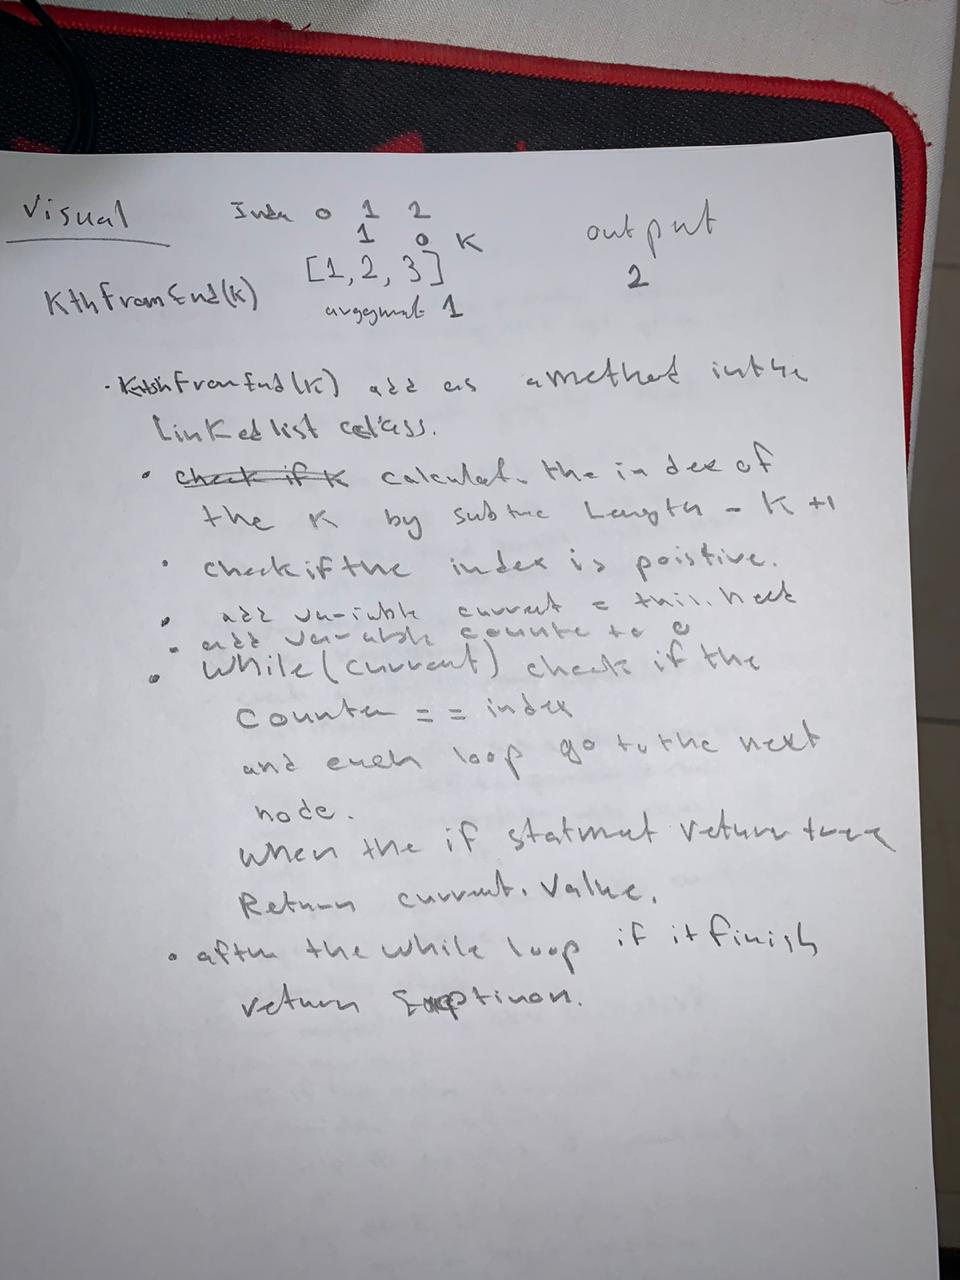 Visual
Index 0 1 2
1 0 K
[1, 2, 3]
output
2
KthFromEnd(K)
argument 1
· KthFromEnd(K) add as a method in the
Linked list class.
· check if K calculate the index of
the K by Length - K +1
· check if the index is poistive.
· add variable current = this.head
· add variable counte to 0
· while (current) check if the
counter == index
and each loop go to the next
node.
When the if statment return true
Return current.Value.
· after the while loop if it finish
return